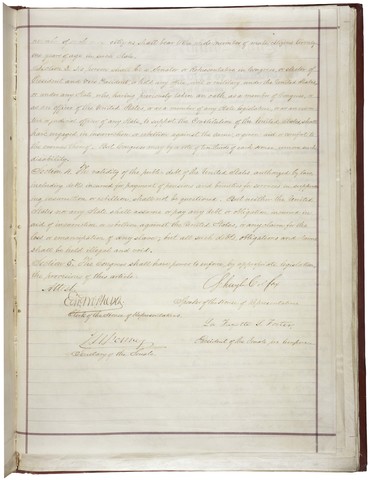 number of such male citizens shall bear to the whole number of male citizens twenty
one years of age in such State.
Section 3. No person shall be a Senator or Representative in Congress, or elector of
President and Vice President, or hold any office, civil or military, under the United States,
or under any State, who, having previously taken an oath, as a member of Congress, or
as an officer of the United States, or as a member of any State legislature, or as an executive
or judicial officer of any State, to support the Constitution of the United States, shall
have engaged in insurrection or rebellion against the same, or given aid or comfort to
the enemies thereof. But Congress may by a vote of two thirds of each House, remove such
disability.
Section 4. The validity of the public debt of the United States, authorized by law,
including debts incurred for payment of pensions and bounties for services in suppress-
ing insurrection or rebellion, shall not be questioned. But neither the United
States nor any State shall assume or pay any debt or obligation incurred in
aid of insurrection or rebellion against the United States, or any claim for the
loss or emancipation of any slave; but all such debts, obligations and claims
shall be held illegal and void.
Section 5. The Congress shall have power to enforce, by appropriate legislation,
the provisions of this article.
Attest.
Schuyler Colfax
Edwd McPherson
Speaker of the House of Representatives.
Clerk of the House of Representatives.
La Fayette S. Foster
J. W. Forney
President of the Senate pro tempore.
Secretary of the Senate.